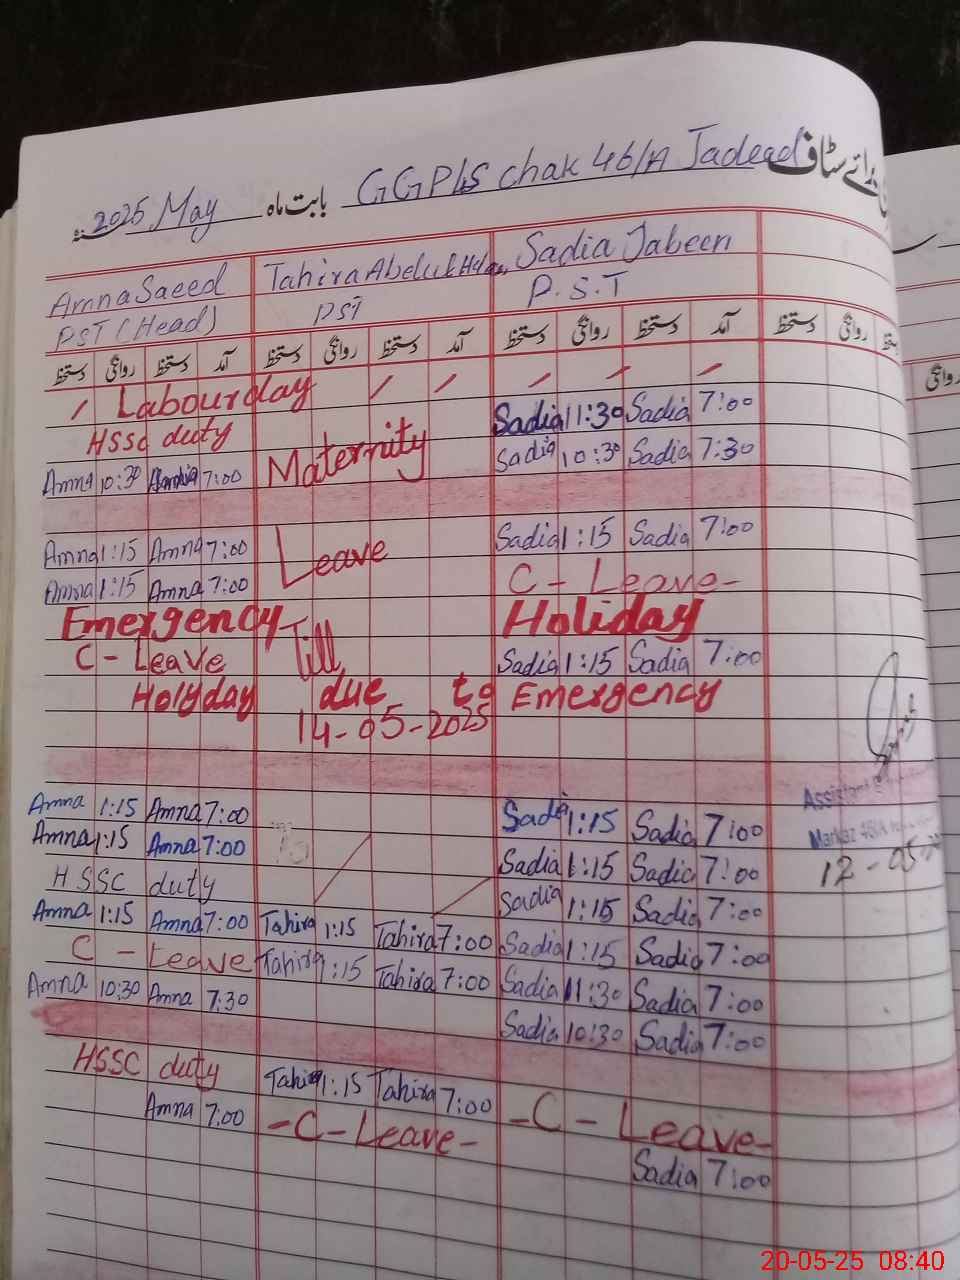 برائے سٹاف GGPLS chak 46/A Jadeed بابت ماہ May 2025
Amna Saeed Tahira Abdul Sadia Jabeen
PST (Head) PST P.S.T
دستخط روانگی دستخط آمد دستخط روانگی دستخط آمد دستخط روانگی دستخط آمد دستخط روانگی
روانگی
Labour day
HSSC duty Sadia 11:30 Sadia 7:00
Amna 10:30 7:00 Maternity Sadia 10:30 Sadia 7:30
Amna 1:15 Amna 7:00 Leave Sadia 1:15 Sadia 7:00
Amna 1:15 Amna 7:00 C - Leave -
Emergency Holiday
C - Leave Till Sadia 1:15 Sadia 7:00
Holyday due to Emergency
14-05-2025
Amna 1:15 Amna 7:00 Sadia 1:15 Sadia 7:00
Amna 1:15 Amna 7:00 Sadia 1:15 Sadia 7:00
HSSC duty Sadia 1:15 Sadia 7:00
Amna 1:15 Amna 7:00 Tahira 1:15 Tahira 7:00 Sadia 1:15 Sadia 7:00
C - Leave Tahira 1:15 Tahira 7:00 Sadia 11:30 Sadia 7:00
Amna 10:30 Amna 7:30 Sadia 10:30 Sadia 7:00
HSSC duty Tahira 1:15 Tahira 7:00 - C - Leave -
Amna 7:00 - C - Leave - Sadia 7:00
Markaz 46/A
12-05-
20-05-25 08:40